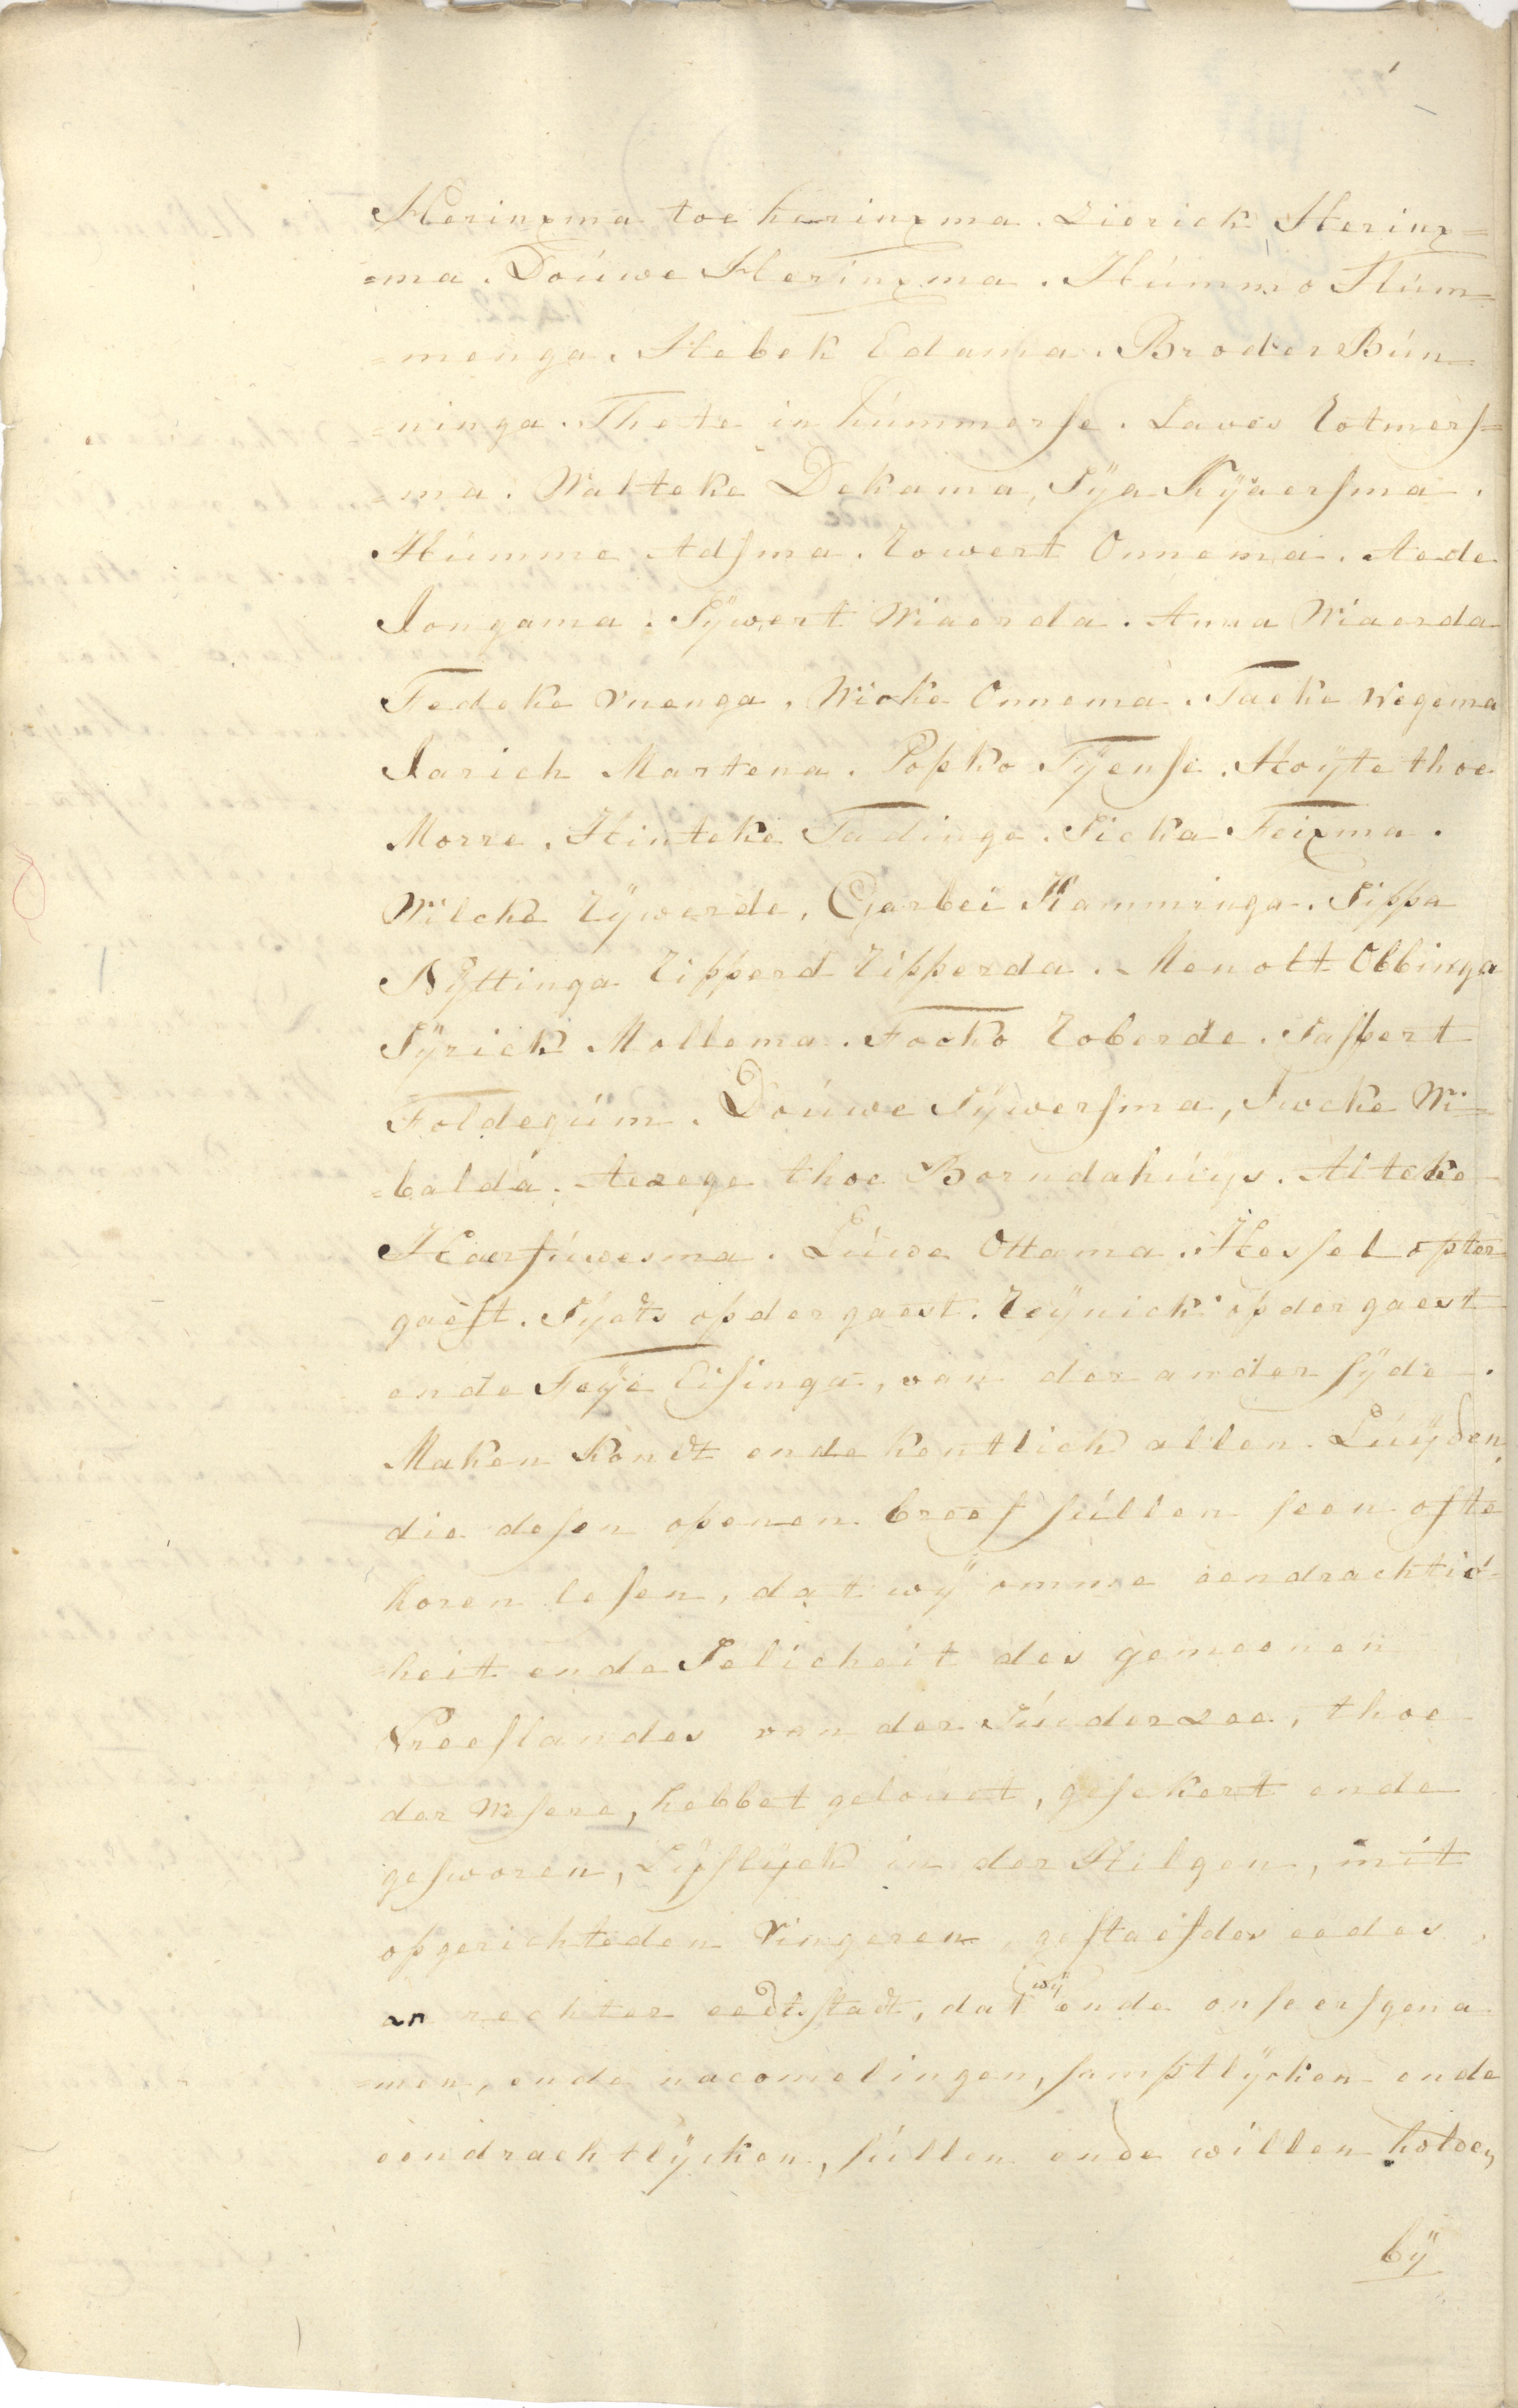 Herinxma toe herinxma. Zierick Herinx=
=ma. Doúwe Herinxma. Húmmo Húm=
=menga. Hebek Edama. Broder Bún=
=ninga. Thete in húmmerse. Laves Eotmers=
=ma. Walteke Dekama, Sÿa Kÿaersma.
Húmme Adsma. Eowert Onnema. Aede
Jongama. Sÿwert Wiaerda. Anna Wiaerda
Fedeke vnenga, Wioke Onnema. Taeke Wegema
Jarich Martena. Popko Tÿense. Hoÿte thoe
Morre. Hinteke Tadinge. Sicka Feixma.
Wilcke Eÿwerde. Garbei Hamminga. Sippa
Nÿttinga Eipperd Eipperda. Menolt Obbinga
Sÿrick Mollema. Focko Eoberde. Saspert
Foldegúm. Doúwe Sÿwersma, Swcke Wi=
=balda. Aezege thoe Borndahúys. Alteke
Haersúwesma. Lúwe Ottama. Hessel opter
gaest. Sÿdts opder gaest. Eeÿnick opder gaest
ende Feÿe Eisinga, van der ander sÿde.
Maken kondt ende kentlick allen Lúÿden,
die desen openen breef súllen seen ofte
horen lesen, dat wÿ omme eendrachtic=
=heit ende Selicheit des gemeenen
Vreeslandes van der Súderzee, thoe
der Wesere, hebbet gelouet, gesekert ende
gesworen, Lÿflÿck in der Hilgen, mit
opgerichteden Vingeren, gestaefdes eedes,
an rechter eedtstadt, dat wÿ ende onse erfgena=
=men, ende nacomelingen, samptlÿcken ende
eendrachtlÿcken, súllen ende willen holden,
bÿ